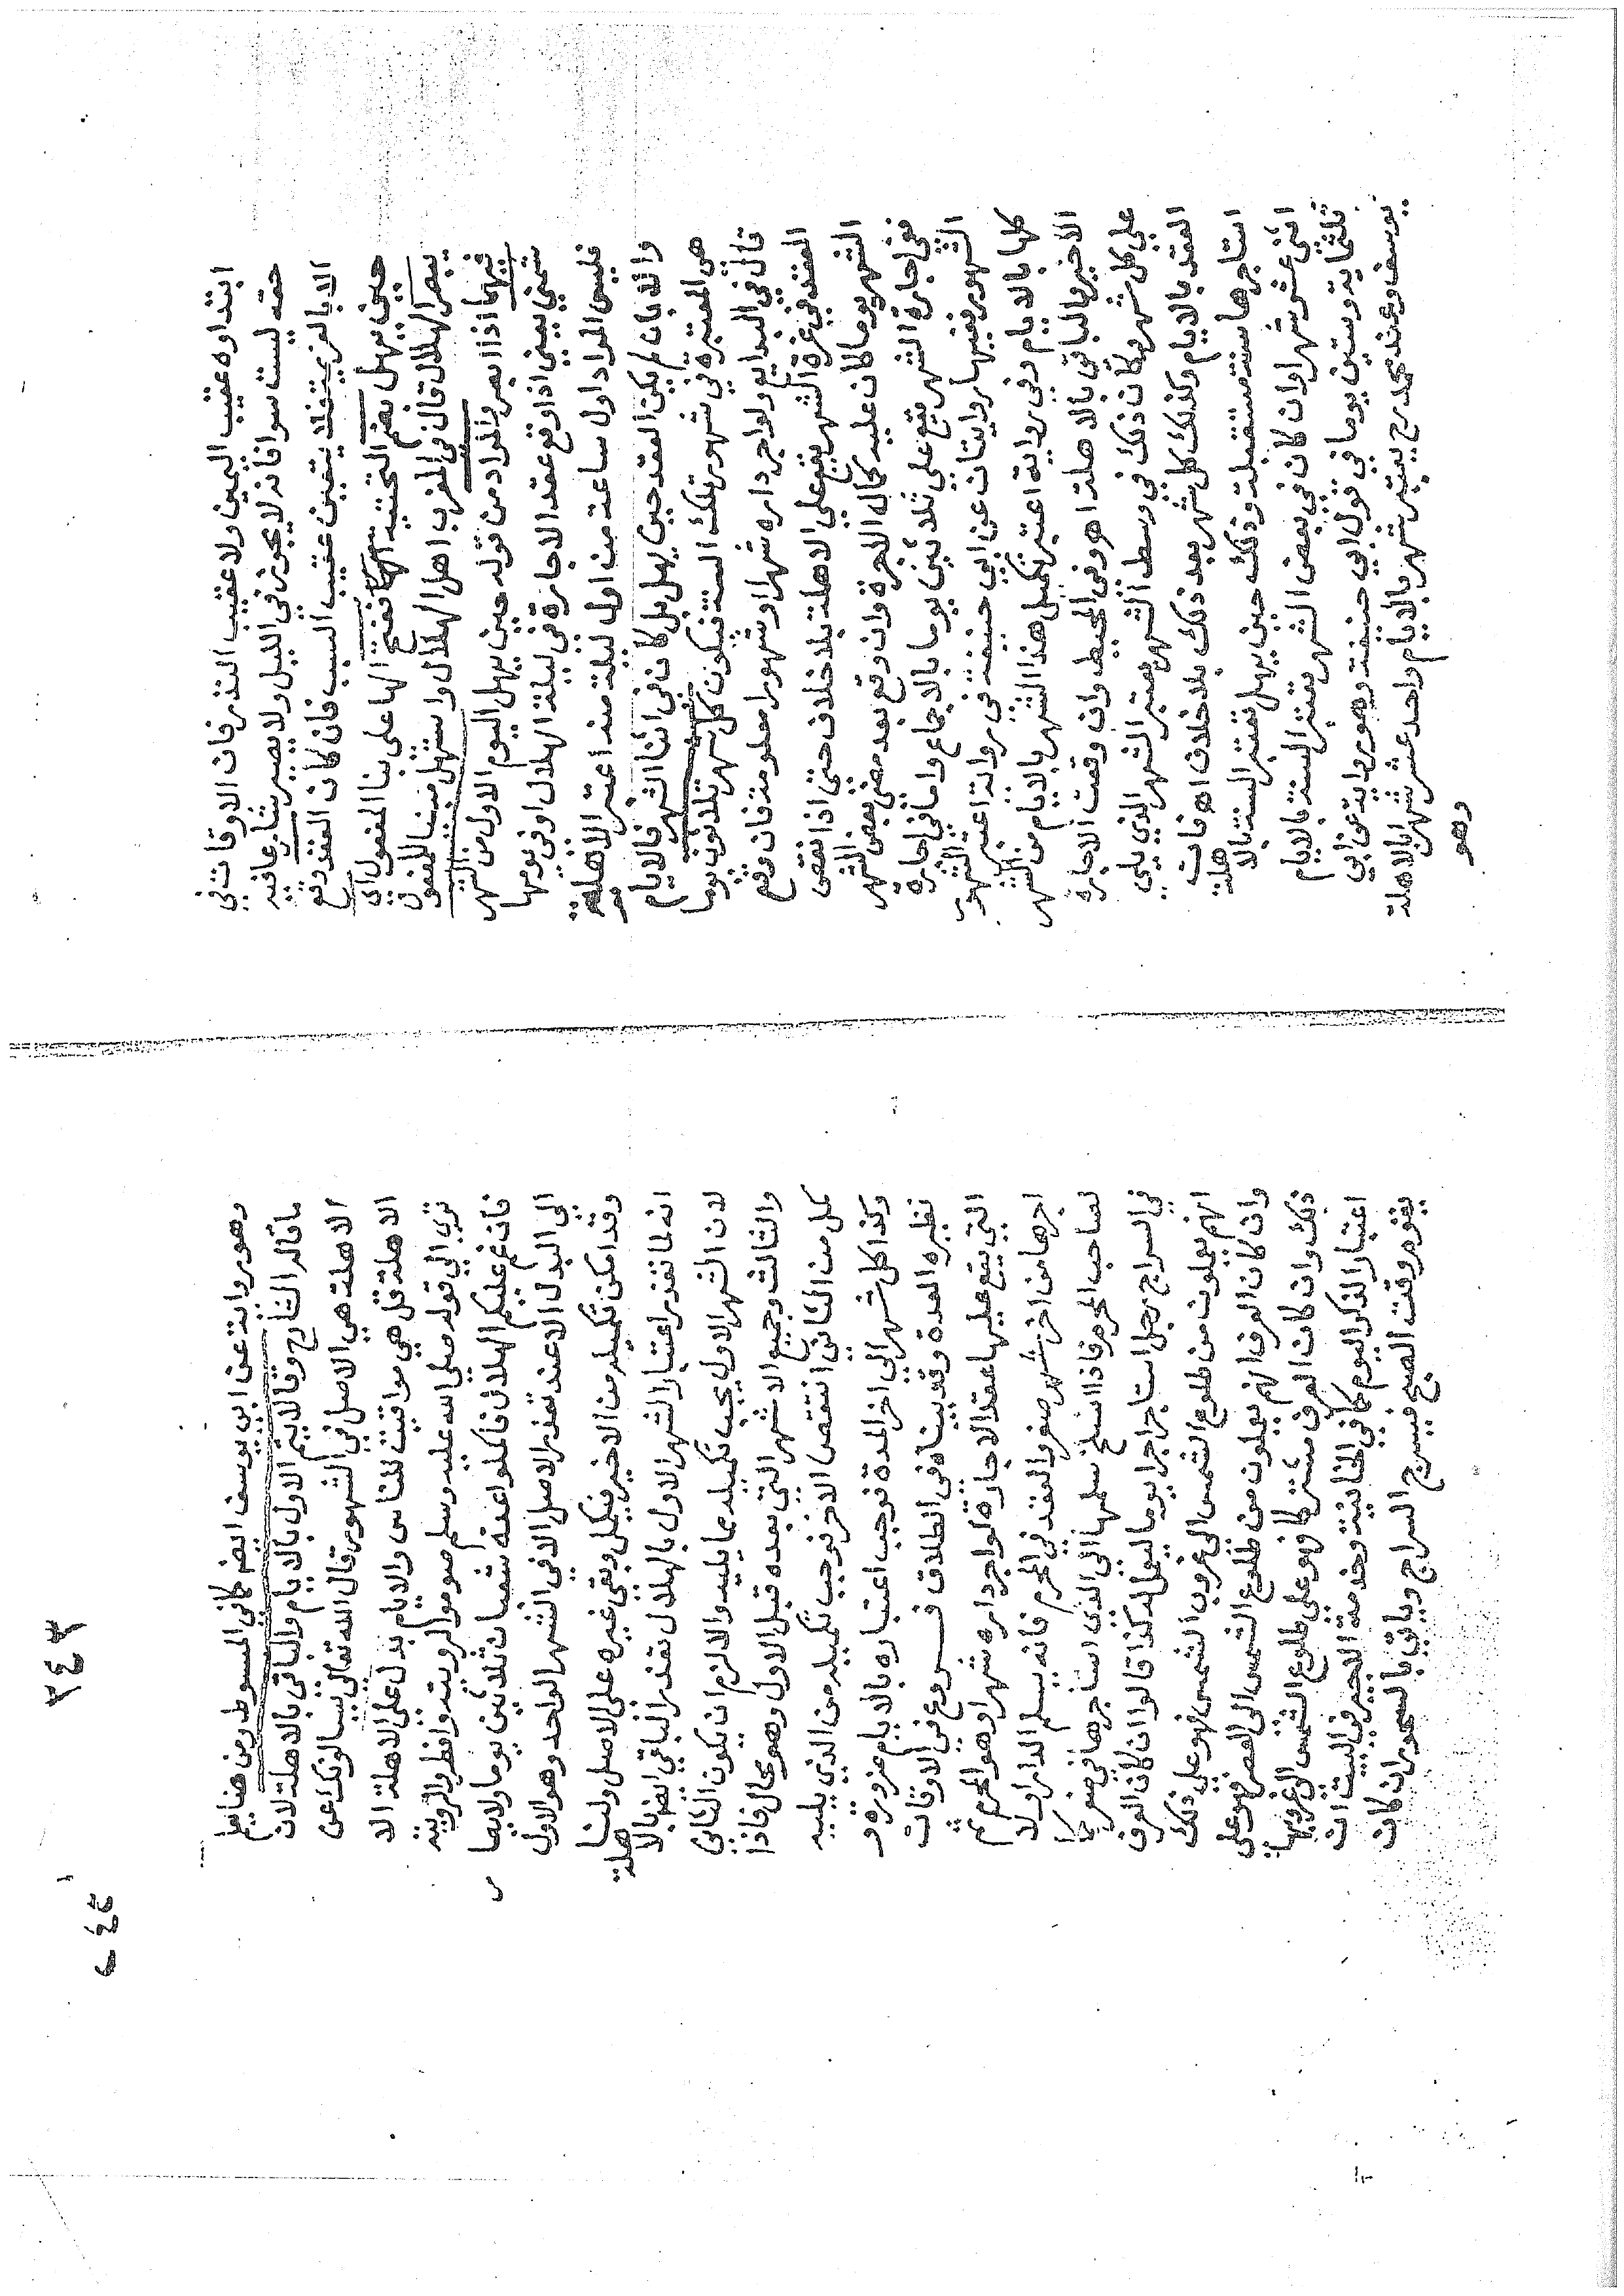 ابتداوه عقيب اليمين ولا عقيب النذر فان الاوقات في
حقه ليست سوا فانه لا يجوز في الليل ولا يصير شارعا فيه
الا بالعزيمة فلا يتعين عقيب السبب فان كان العقد وقع
حين يهل بضم التحتية وفتح الها على بنا المفعول اي
يبصر الهلال قال في المغرب اهل الهلال واستهل مبنيا للمفعول
فيهما اذا ابصر والمراد من قوله حين يهل اليوم الاول من الشهر
حتي يعني اذا وقع عقد الاجارة في ليلة الهلال او في يومها
فليس المراد اول ساعة من اول ليلة منه اعتبر الاهلة
والا بان لم يكن العقد حين يهل بل كان في اثنا الشهر فالايام
هي المعتبرة في شهور تلك السنة فيكون كل شهر ثلاثون يوما
قال في البدايع ولو اجر داره شهرا او شهورا معلومة فان وقع
العقد في غرة الشهر يقع علي الاهلة بلا خلاف حتى اذا نقص
الشهر يوما كان عليه كمال الاجرة وان وقع بعد مضي بعض الشهر
ففي اجارة الشهر يقع علي ثلاثين يوما بالاجماع واما في اجارة
الشهور ففيها روايتان عن ابي حنيفة في رواية اعتبر الشهور
كلها بالايام وفي رواية اعتبر تكميل هذا الشهر بالايام من الشهر
الاخير والباقي بالاهلة اهـ وفي المحيط وان وقعت الاجارة
علي كل شهر وكان ذلك في وسط الشهر يعتبر الشهر الذي يلي
العقد بالايام وكذلك كل شهر بعد ذلك بلا خلاف اهـ فان
استاجرها سنة مستقبلة وذلك حين يهل تعتبر السنة بالاهلة
اثني عشر شهرا وان كان في بعض الشهر تعتبر السنة بالايام
ثلثماية وستين يوما في قول ابي حنيفة وهو رواية عن ابي
يوسف وعند محمد رح يعتبر شهر بالايام واحد عشر شهرا بالاهلة
وهو
وهو رواية عن ابي يوسف ايضا كما في المبسوط ومن هنا يعلم
ما قاله الشارح وقالا يتم الاول بالايام والباقي بالاهلة لان
الاهلة هي الاصل في الشهور قال الله تعالي يسالونك عن
الاهلة قل هي مواقيت للناس والايام بدل علي الاهلة الا
تري الي قوله صلي الله عليه وسلم صوموا لرؤيته وافطروا لرؤيته
فان غم عليكم الهلال فاكملوا عدة شعبان ثلاثين يوما ولا يصار
الي البدل الا عند تعذر الاصل الا في الشهر الواحد وهو الاول
وقد امكن تكميله من الاخير فيكمل وبقي غيره علي الاصل ولنا
انه لما تعذر اعتبار الشهر الاول بالهلال تعذر الباقي ايضا بالاهلة
لان الشهر الاول يجب تكميله مما يليه والا لزم ان يكون الثاني
والثالث وجميع الاشهر التي بعده قبل الاول وهو محال فاذا
كمل من الثاني انتقص الاخر فوجب تكميله من الذي يليه
وكذا كل شهر الي اخر المدة فوجب اعتباره بالايام ضرورة و
نظيره العدة وقد بيناه في الطلاق فـروع في الاوقات
التي يقع عليها عقد الاجارة لو اجر داره شهرا وهو المحرم ثم
اجرها من اخر شهر صفر والعقد في المحرم فانه يسلم الدار اولا
لصاحب المحرم فاذا انسلخ سلمها الي الذي استاجرها في صفر كما
في السراج رجل استاجر اجيرا يوما ليعمل له كذا قالوا ان كان العرف
انهم يعملون من طلوع الشمس الى غروب الشمس فهو علي ذلك
وان كان العرف انهم يعملون من طلوع الشمس الى العصر فهو علي
ذلك وان كان العرف مشتركا فهو علي طلوع الشمس الي غروبها
اعتبارا لذكر اليوم كما في الخانية وخدمة الاجير في البيت ان
يقوم وقت الصبح فيسرج السراج وياتي بالسحور ان كان
٣٤٣
٣٤٤